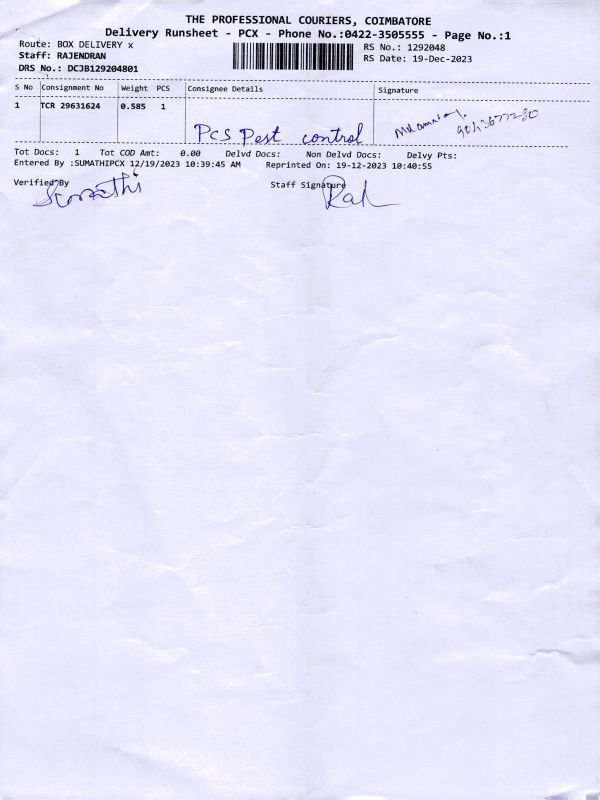 THE PROFESSIONAL COURIERS, COIMBATORE
Delivery Runsheet - PCX - Phone No.:0422-3505555 - Page No.:1
Route: BOX DELIVERY x
RS No.: 1292048
Staff: RAJENDRAN
RS Date: 19-Dec-2023
DRS No.: DCJB129204801
S No Consignment No Weight PCS Consignee Details Signature
1 TCR 29631624 0.585 1
PCS Pest control
Tot Docs: 1 Tot COD Amt: 0.00 Delvd Docs: Non Delvd Docs: Delvy Pts:
Entered By :SUMATHIPCX 12/19/2023 10:39:45 AM Reprinted On: 19-12-2023 10:40:55
Verified By Staff Signature
Sumathi